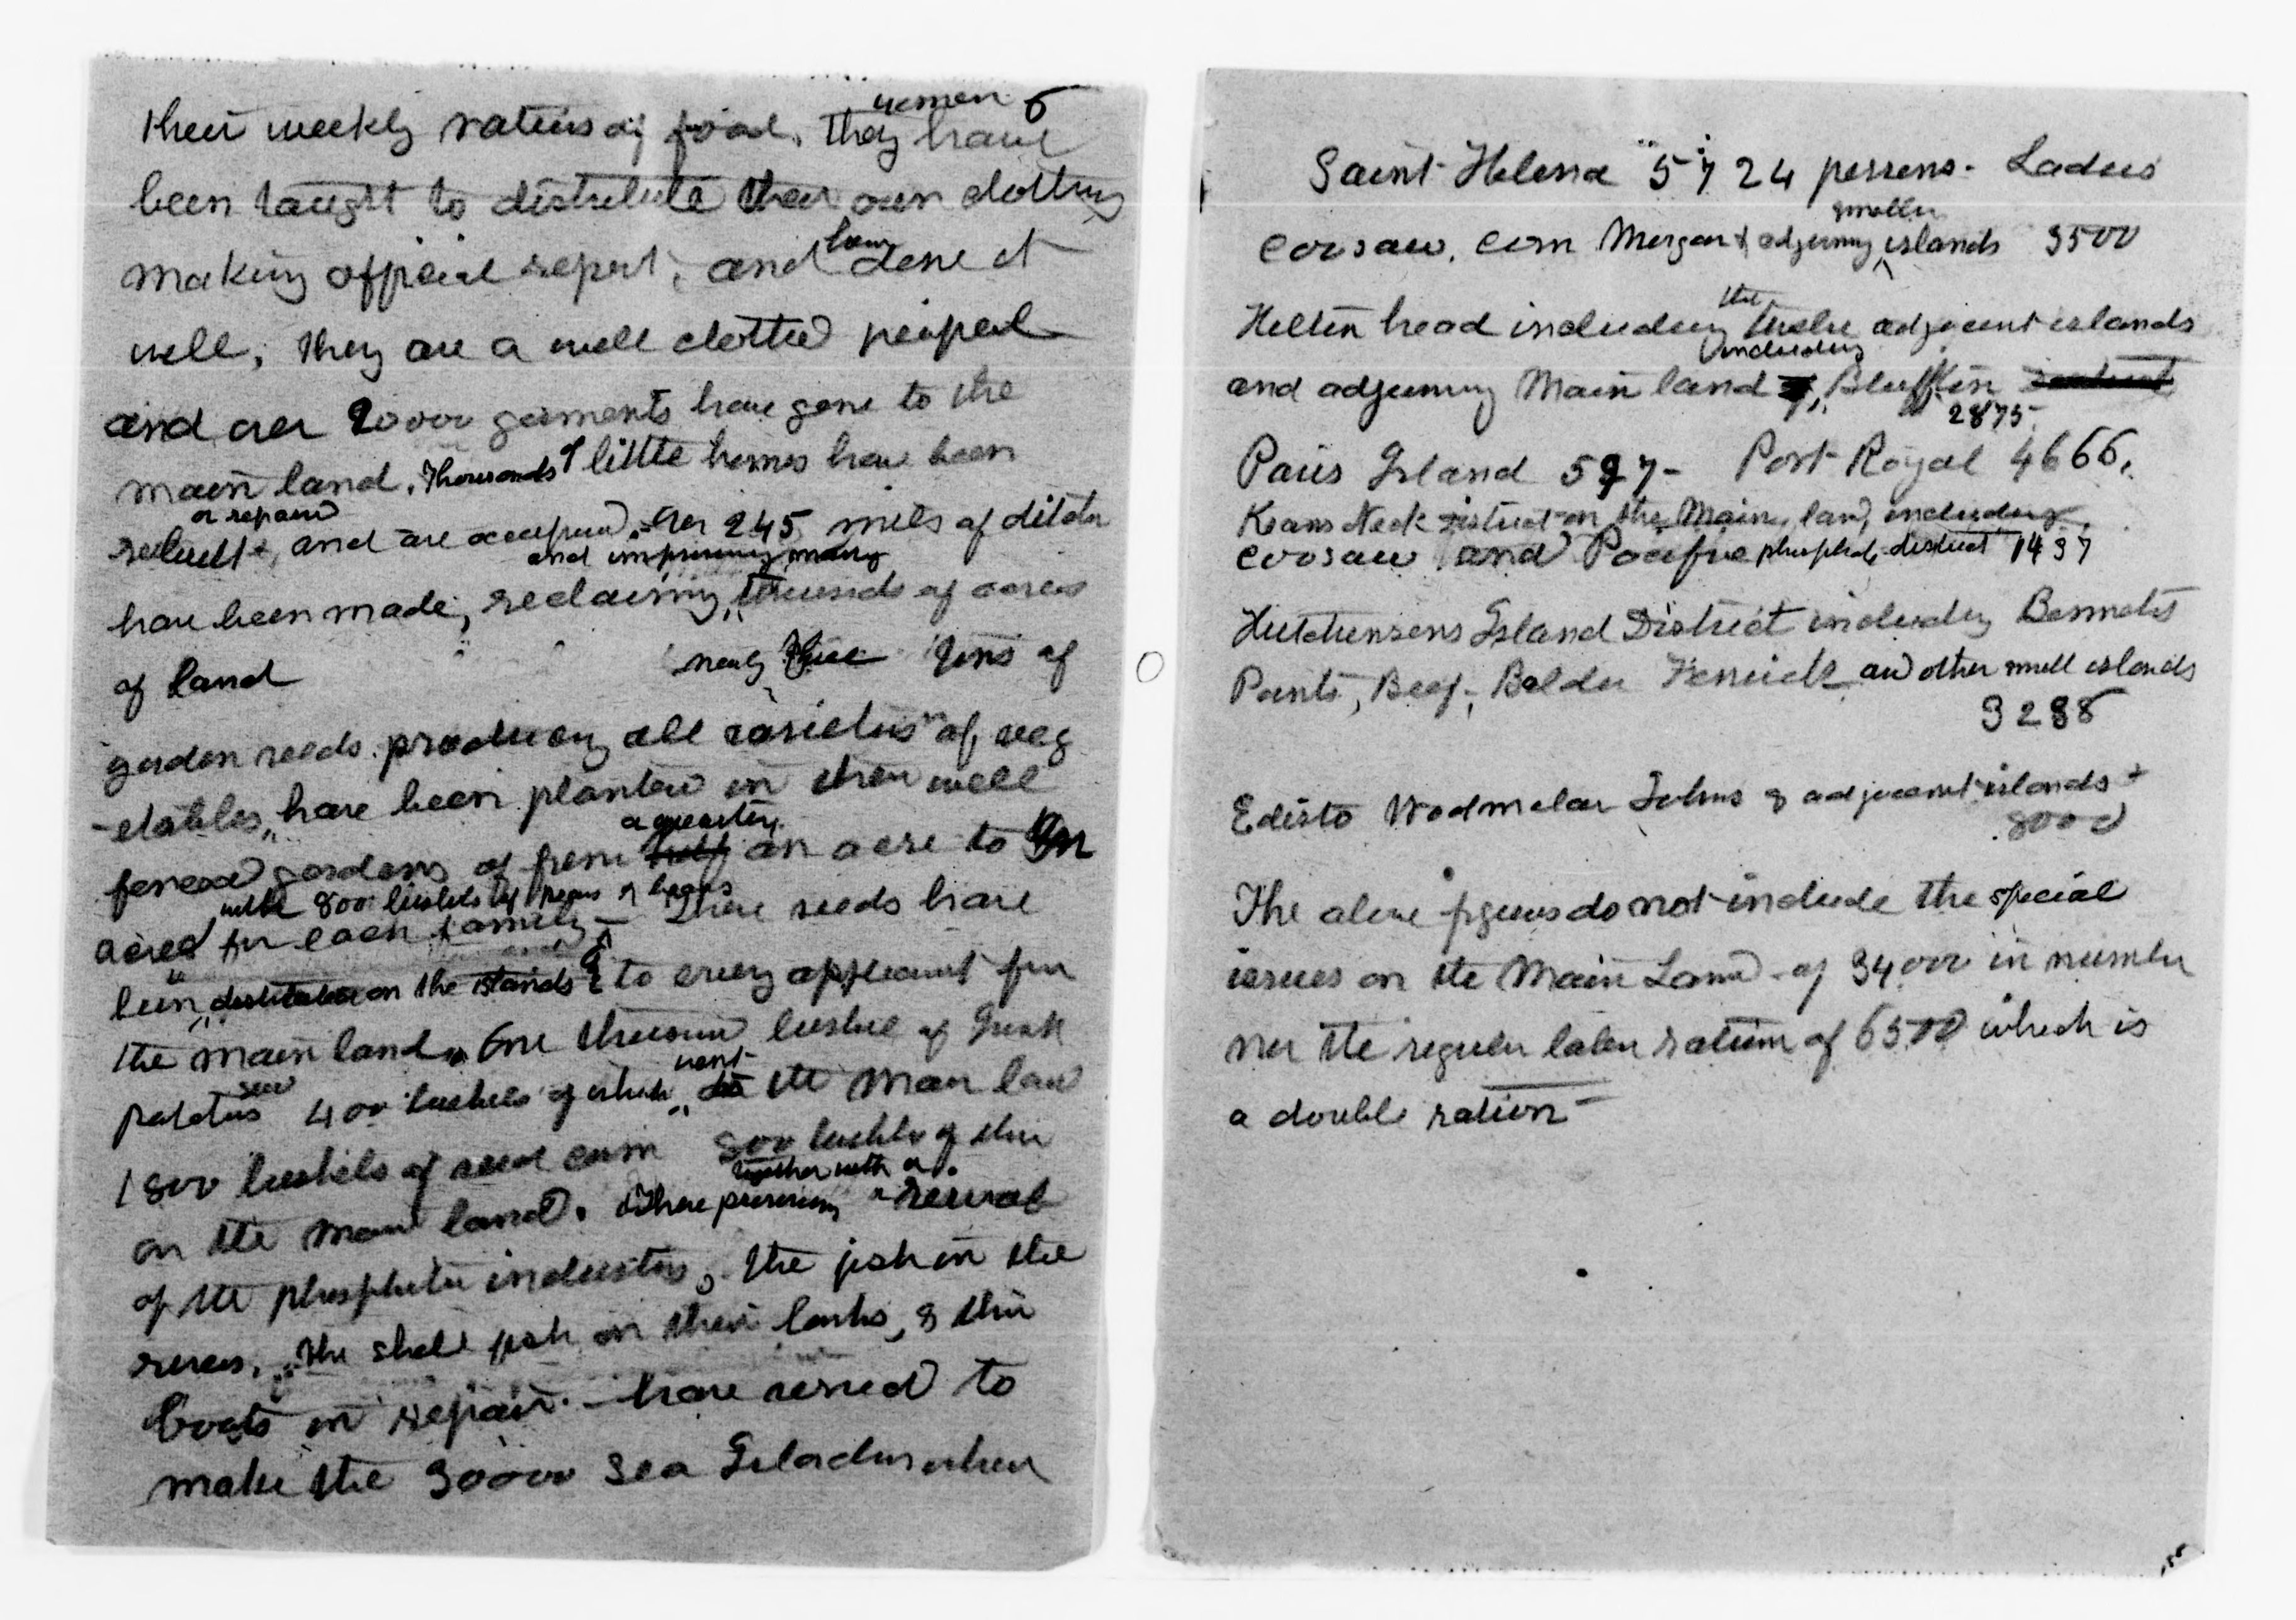 women 6
their weekly rations of food. They have
been taught to distribute their own clothing
have
making official report, and done it
well, they are a well clothed people
and over 20000 garments have gone to the
main land. Thousands of little homes have been
or repaired
rebuilt, and are occupied. Over 245 miles of ditch
and improving many
have been made, reclaiming thousands of acres
of land nearly three tons of
garden seeds producing all varieties of veg
-etables, have been planted in their well
a quarter
fenced gardens of from half an acre to
with 800 bushels of peas & beans
acred for each family - These seeds have
been distributed on the islands & to every applicant from
the main land. One thousand bushel of Irish
seed went
potatoes 400 bushels of which to the main land
1800 bushels of seed corn 800 bushels of this
together with a
on the main land. These provisions revival
of the phosphate industry, the fish in the
rivers, the shell fish on their banks, & their
boats in repair - have served to
make the 30000 Sea Islanders when
Saint Helena 5724 persons - Ladies
smaller
Coosaw, Corn Morgan & adjoining islands 3500
the
Hilton head including twelve adjacent islands
including
and adjoining Main land, Bluffton
2875
Paris Island 597 - Port Royal 4666.
Keans Neck district on the Main land, including
Coosaw and Pacific phosphate district 1437
Hutchinsons Island District including Bennetts
Points, Beef, Balder Fenwick and other small islands
3288
Edisto Wadmelaw Johns & adjacent islands
8000
The above figures do not include the special
issues on the Main Land of 34000 in number
nor the regular labor ration of 6500 which is
a double ration